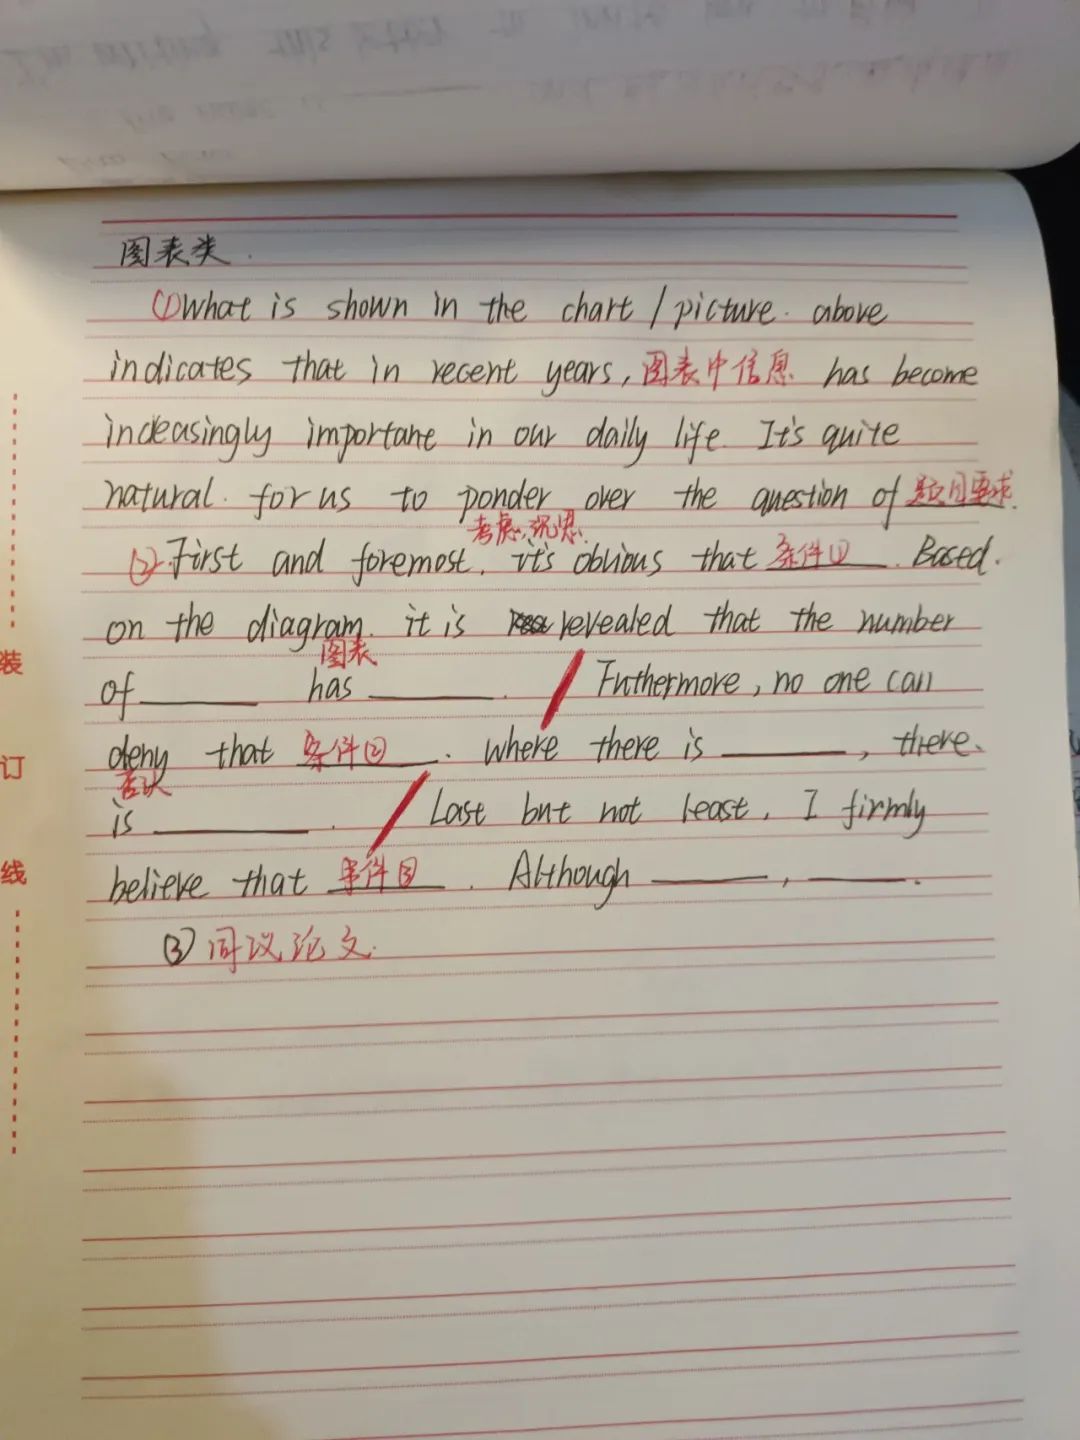 图表类.
①What is shown in the chart / picture. above
indicates that in recent years, 图表中信息 has become
increasingly important in our daily life. It's quite
natural. for us to ponder over the question of 题目要求.
考虑,沉思.
②.First and foremost, it's obvious that 条件① . Based.
on the diagram. it is revealed that the number
图表
of ______ has ______ . / Futhermore, no one can
deny that 条件② . where there is ______ , there.
否认
is ______ . / Last but not least, I firmly
believe that 条件③ . Although ______ , ______ .
③ 同议论文.
装
订
线